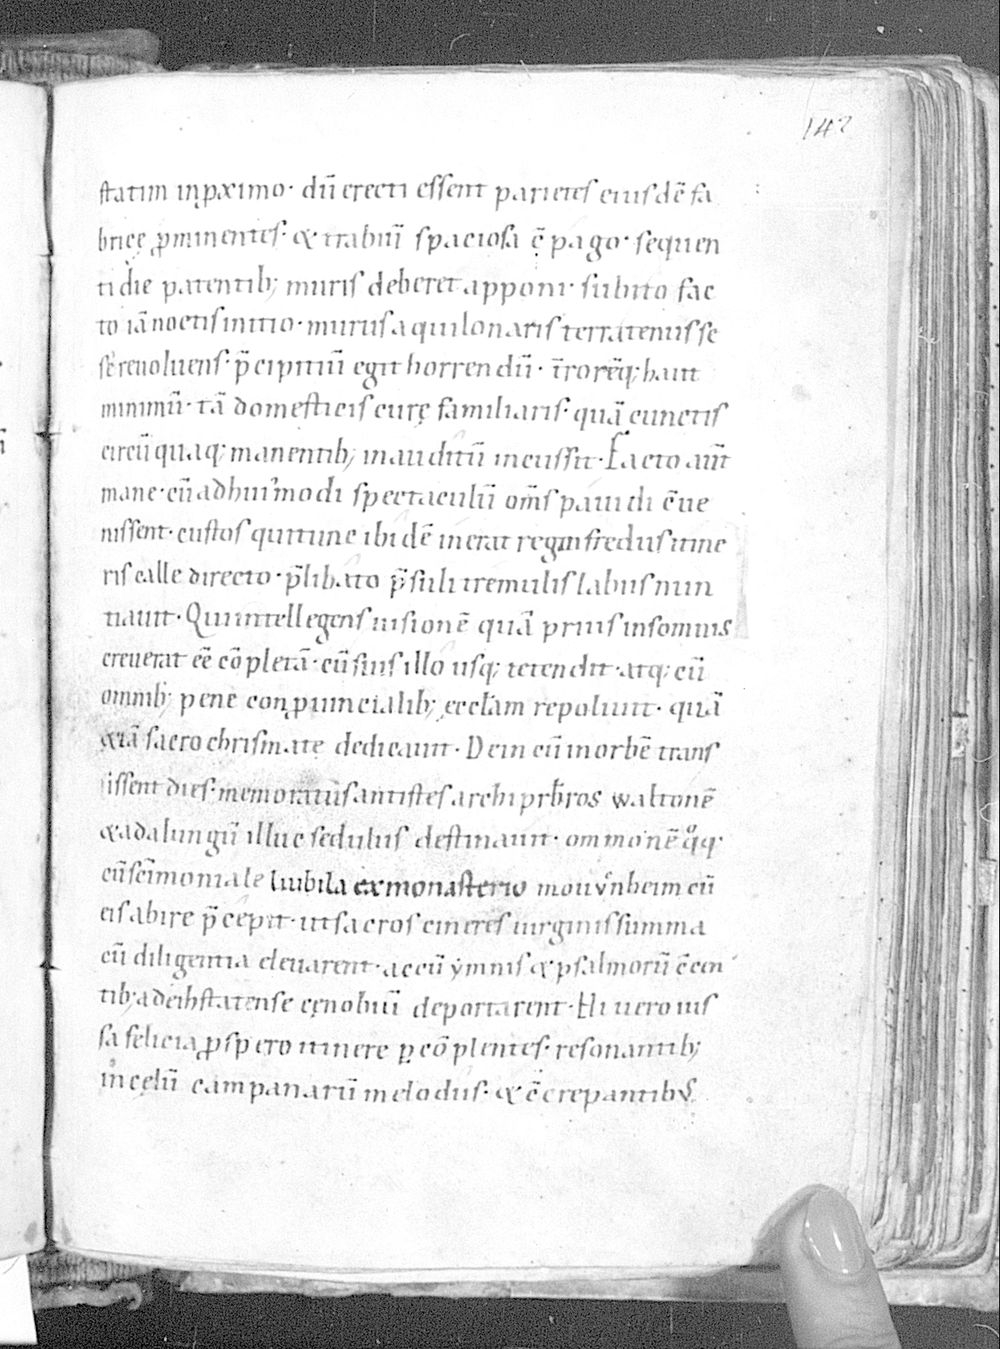 142
statim inꝓximo· dũ erecti essent parietes eiusdẽ fa
bricę ꝓminentes· & trabiũ spaciosa cõpago· sequen
ti die patentib; muris deberet apponi· subito fac
to iã noctis initio· murus aquilonaris terratenus se
se reuoluens· p̃cipitiũ egit horrendũ· t̃rorẽq; haut
minimũ· tã domesticis curę familiaris· quã cunctis
circũquaq; manentib; inauditũ incussit· Facto aut̃
mane· cũ adhui'modi spectaculũ om̃s pauidi cõue
nissent· custos qui tunc ibidẽ inerat reginfredus itine
ris calle directo· p̃libato p̃suli tremulis labiis nun
tiauit· Qui intellegens uisionẽ quã prius insomnis
creuerat eẽ cõpletã· cũ suis illo usq; tetendit· atq; cũ
omnib; pene conꝓuincialib; ęccłam repoliuit· quã
&iã sacro chrismate dedicauit· Dein cũ inorbẽ trans
issent dies· memoratus antistes archiprƀros waltonẽ
& adalungũ illuc sedulus destinauit· ommonẽ qͦq·
cũ sc̃imoniale liubila exmonasterio mouuͦnheim cũ
eis abire p̃cepit· ut sacros cineres uirginis summa
cũ diligentia eleuarent· ac cũ ẏmnis & psalmorũ cõcen
tib; adeihstatense cęnobiũ deportarent· Hi uero ius
sa felicia ꝓspero itinere ꝑcõplentes· resonantib;
in cęlũ campanarũ melodiis· & cõcrepantibus